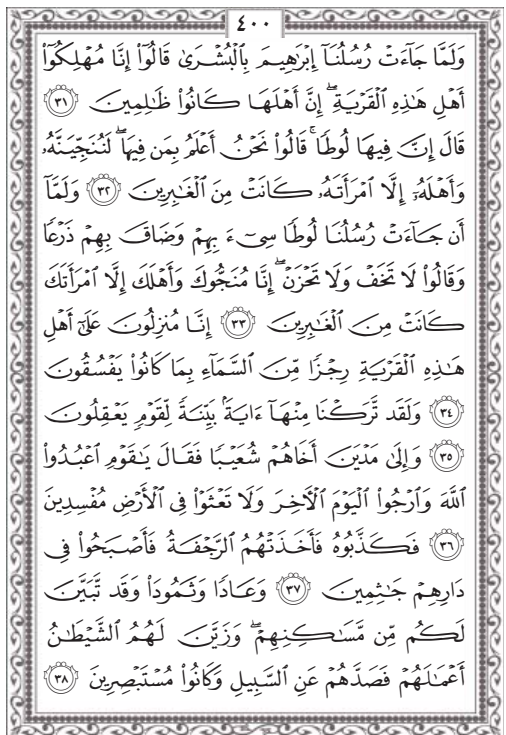 ٤٠٠
وَلَمَّا جَآءَتْ رُسُلُنَآ إِبْرَٰهِيمَ بِٱلْبُشْرَىٰ قَالُوٓا۟ إِنَّا مُهْلِكُوٓا۟
أَهْلِ هَٰذِهِ ٱلْقَرْيَةِ ۖ إِنَّ أَهْلَهَا كَانُوا۟ ظَٰلِمِينَ ٣١
قَالَ إِنَّ فِيهَا لُوطًا ۚ قَالُوا۟ نَحْنُ أَعْلَمُ بِمَن فِيهَا ۖ لَنُنَجِّيَنَّهُۥ
وَأَهْلَهُۥٓ إِلَّا ٱمْرَأَتَهُۥ كَانَتْ مِنَ ٱلْغَٰبِرِينَ ٣٢ وَلَمَّآ
أَن جَآءَتْ رُسُلُنَا لُوطًا سِىٓءَ بِهِمْ وَضَاقَ بِهِمْ ذَرْعًا
وَقَالُوا۟ لَا تَخَفْ وَلَا تَحْزَنْ ۖ إِنَّا مُنَجُّوكَ وَأَهْلَكَ إِلَّا ٱمْرَأَتَكَ
كَانَتْ مِنَ ٱلْغَٰبِرِينَ ٣٣ إِنَّا مُنزِلُونَ عَلَىٰٓ أَهْلِ
هَٰذِهِ ٱلْقَرْيَةِ رِجْزًا مِّنَ ٱلسَّمَآءِ بِمَا كَانُوا۟ يَفْسُقُونَ
٣٤ وَلَقَد تَّرَكْنَا مِنْهَآ ءَايَةًۢ بَيِّنَةً لِّقَوْمٍ يَعْقِلُونَ
٣٥ وَإِلَىٰ مَدْيَنَ أَخَاهُمْ شُعَيْبًا فَقَالَ يَٰقَوْمِ ٱعْبُدُوا۟
ٱللَّهَ وَٱرْجُوا۟ ٱلْيَوْمَ ٱلْءَاخِرَ وَلَا تَعْثَوْا۟ فِى ٱلْأَرْضِ مُفْسِدِينَ
٣٦ فَكَذَّبُوهُ فَأَخَذَتْهُمُ ٱلرَّجْفَةُ فَأَصْبَحُوا۟ فِى
دَارِهِمْ جَٰثِمِينَ ٣٧ وَعَادًا وَثَمُودَا۟ وَقَد تَّبَيَّنَ
لَكُم مِّن مَّسَٰكِنِهِمْ ۖ وَزَيَّنَ لَهُمُ ٱلشَّيْطَٰنُ
أَعْمَٰلَهُمْ فَصَدَّهُمْ عَنِ ٱلسَّبِيلِ وَكَانُوا۟ مُسْتَبْصِرِينَ ٣٨